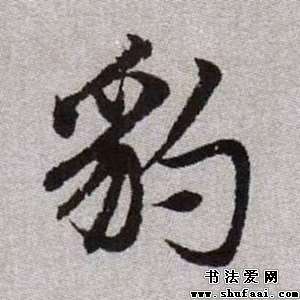 豹
书法爱网
www.shufaai.com